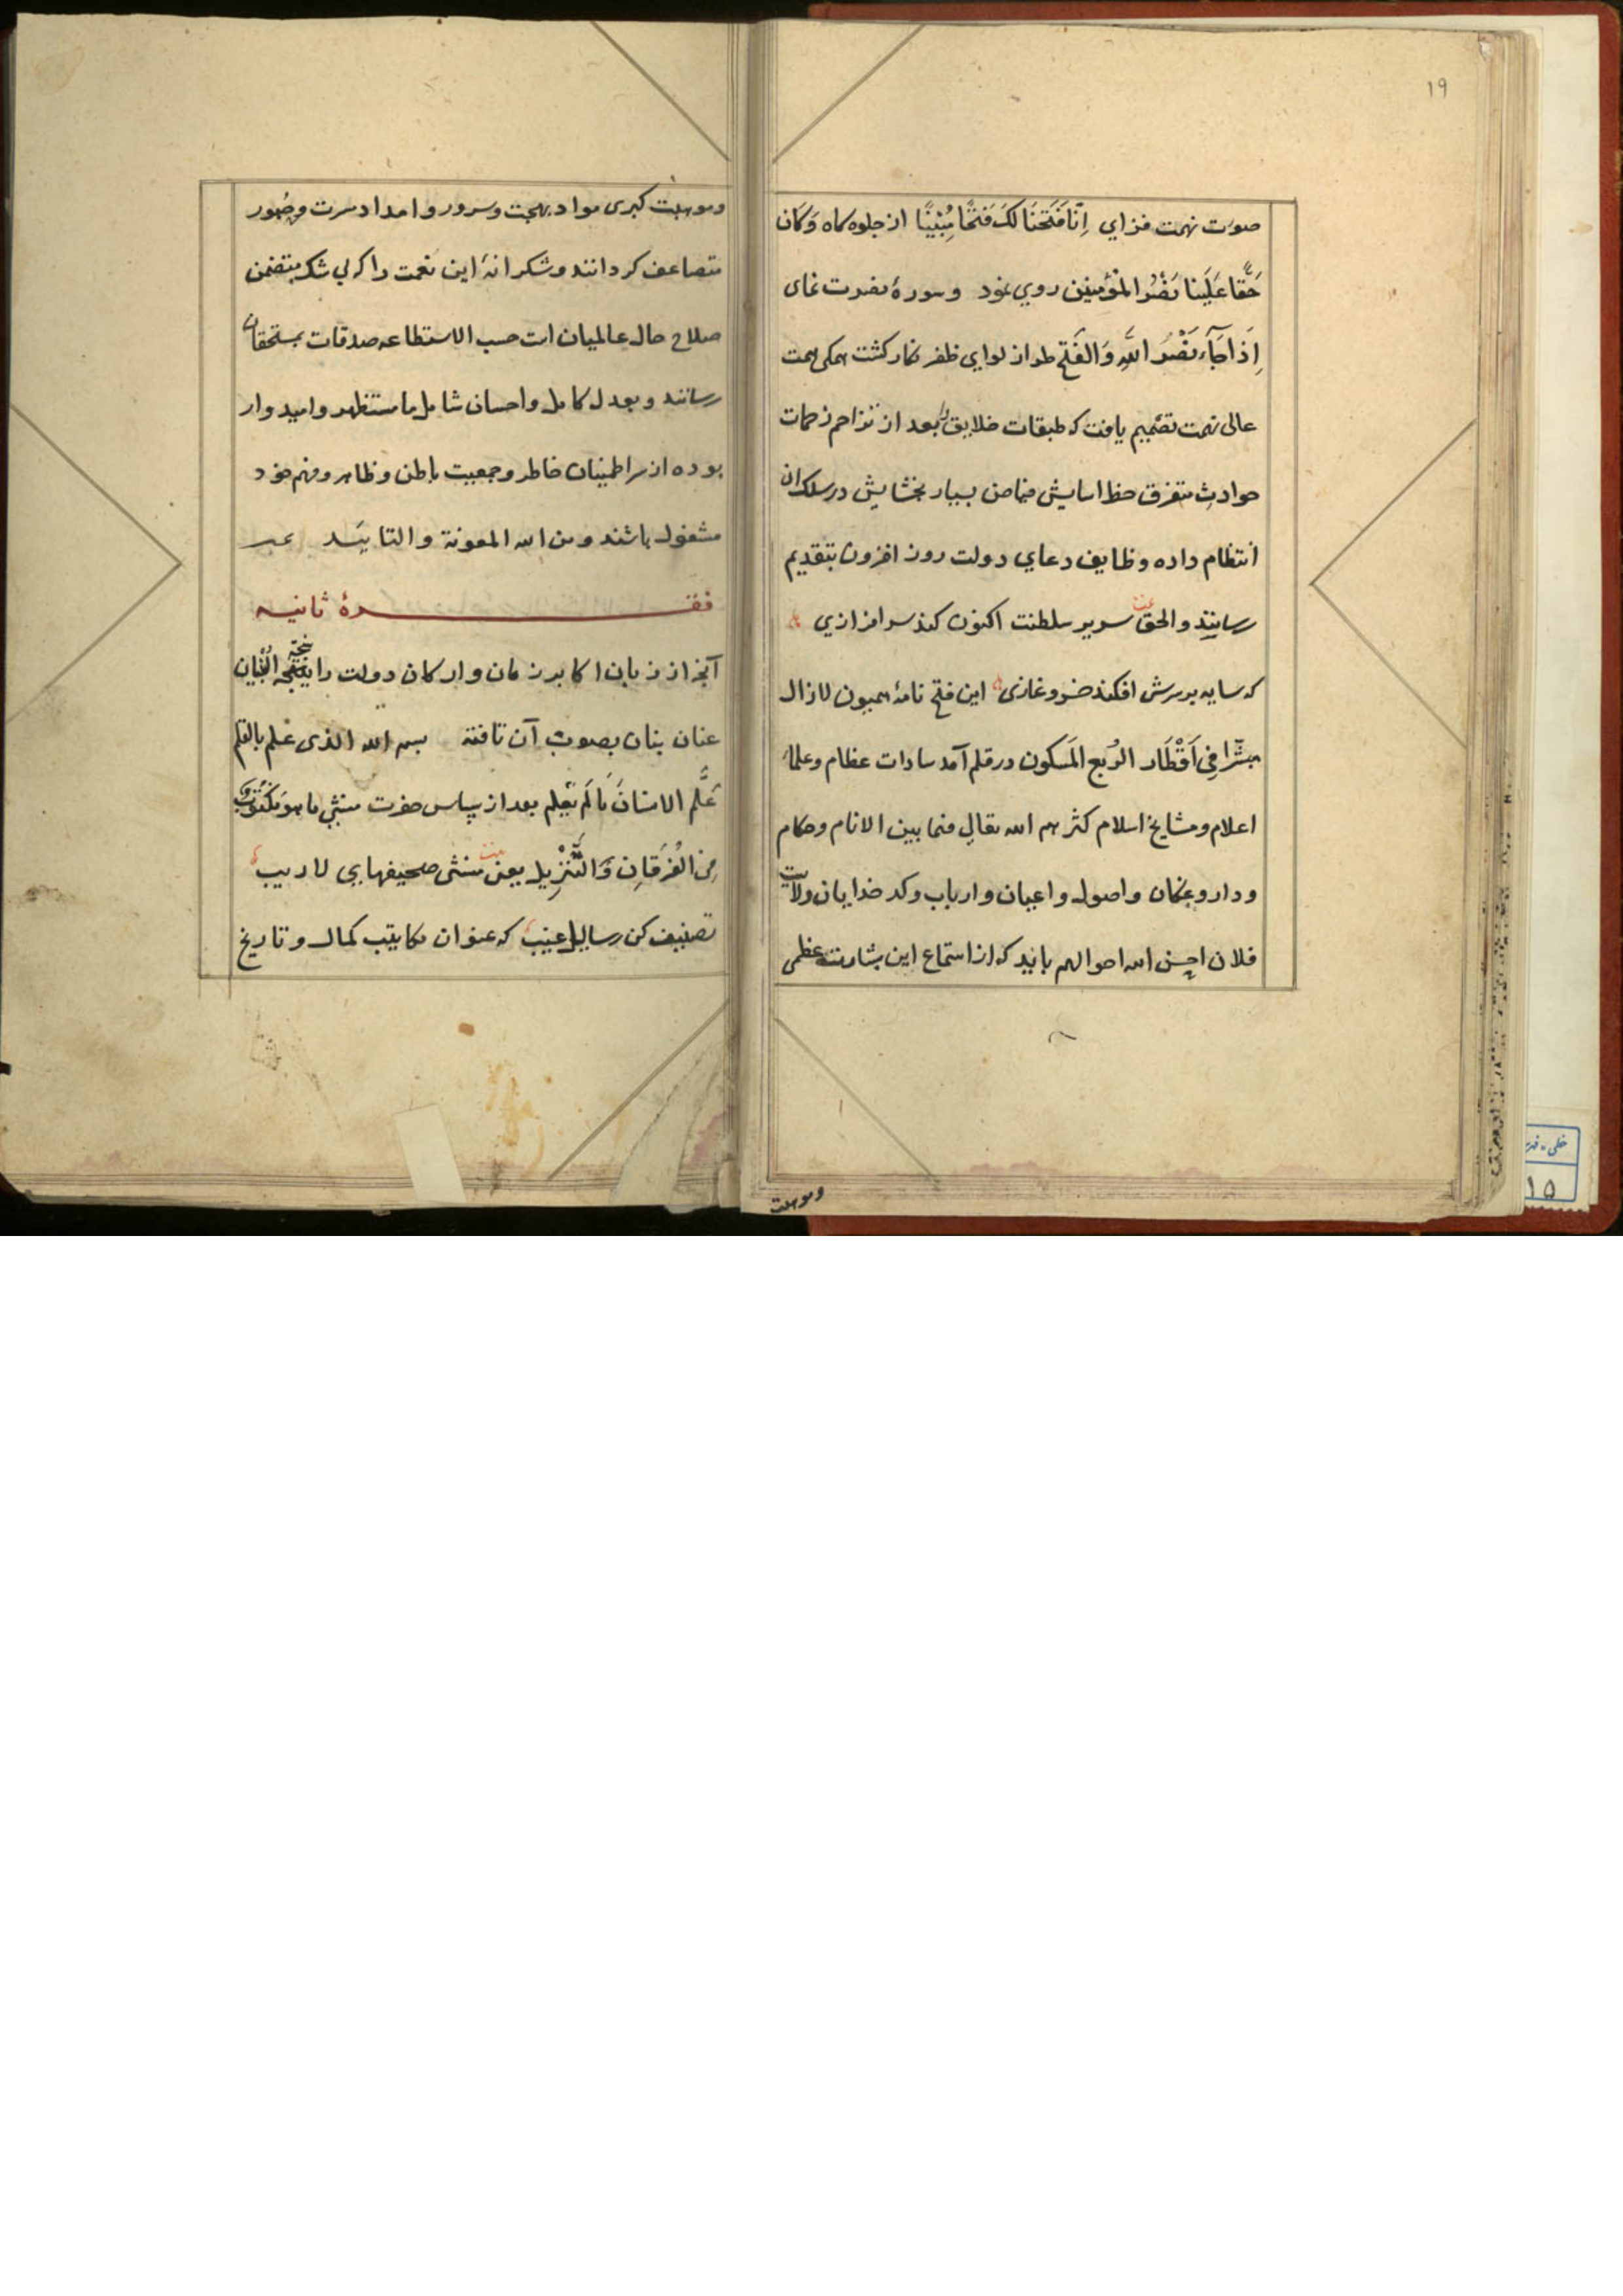 ۱۹
صورت بهجت فزاي اِنّا فَتَحنَا لَكَ فَتحًا مُبْینًا از جلوه کاه وَكَانَ
حَقًّا عَلَینا نَصْرُ المُؤمنین روي نمود و سورۀ نصرت نمای
اِذا جَآءَ نَصْرُ اللّهِ وَالفَتح طراز لواي ظفر نکار کشت همکی همت
عالی نهمت تصمیم یافت که طبقات خلایق را بعد از تزاحم زحمات
حوادثِ متفرق حظ اسایش فیاض بسیار بخشایش در سلک ان
انتظام داده وظایف دعاي دولت روز افزون بتقدیم
رسانند والحق بیت سریر سلطنت اکنون کند سرافرازي
که سایه بر سرش افکند خسرو غازی این فتح نامۀ همیون لازال
مبشّرا فِي اَقْطَار الرُبع المَسکون در قلم آمد سادات عظام وعلماء
اعلام ومشایخ اسلام کثرهم الله تعالي فیما بین الانام وحکام
وداروغکان واصول واعیان وارباب وکدخدایان ولایت
فلان احسن الله احوالهم بایدکه از استماع این بشارت عظمی
وموهبت
وموهبت کبری مواد بهجت وسرور وامداد مسرت وحبور
متضاعف کردانند وشکرانۀ این نعمت را که بي شک متضمن
صلاح حال عالمیان است حسب الاستطاعه صدقات بمستحقان
رسانند وبعدل کامل واحسان شامل ما مستظهر وامیدوار
بوده از سر اطمینان خاطر وجمعیت باطن وظاهر ومهم خود
مشغول باشند ومن الله المعونة والتایید
فقرۀ ثانیه
آنچه از زبان اکابر زمان وارکان دولت را البیان
عنان بنان بصوب آن تافته بسم الله الذی عَلم بالقلم
عَلَّم الانسانَ مَا لَم یَعلم بعد از سپاس حضرت منشيِ ما هو مَکتُوب
مِن الفُرقَانِ وَالتَّنزْیل یعنی بیت منشئ صحیفهاي لاریب
تصنیف کن رسایل غیب که عنوان مکاتیب کمال وتاریخ
۱۵